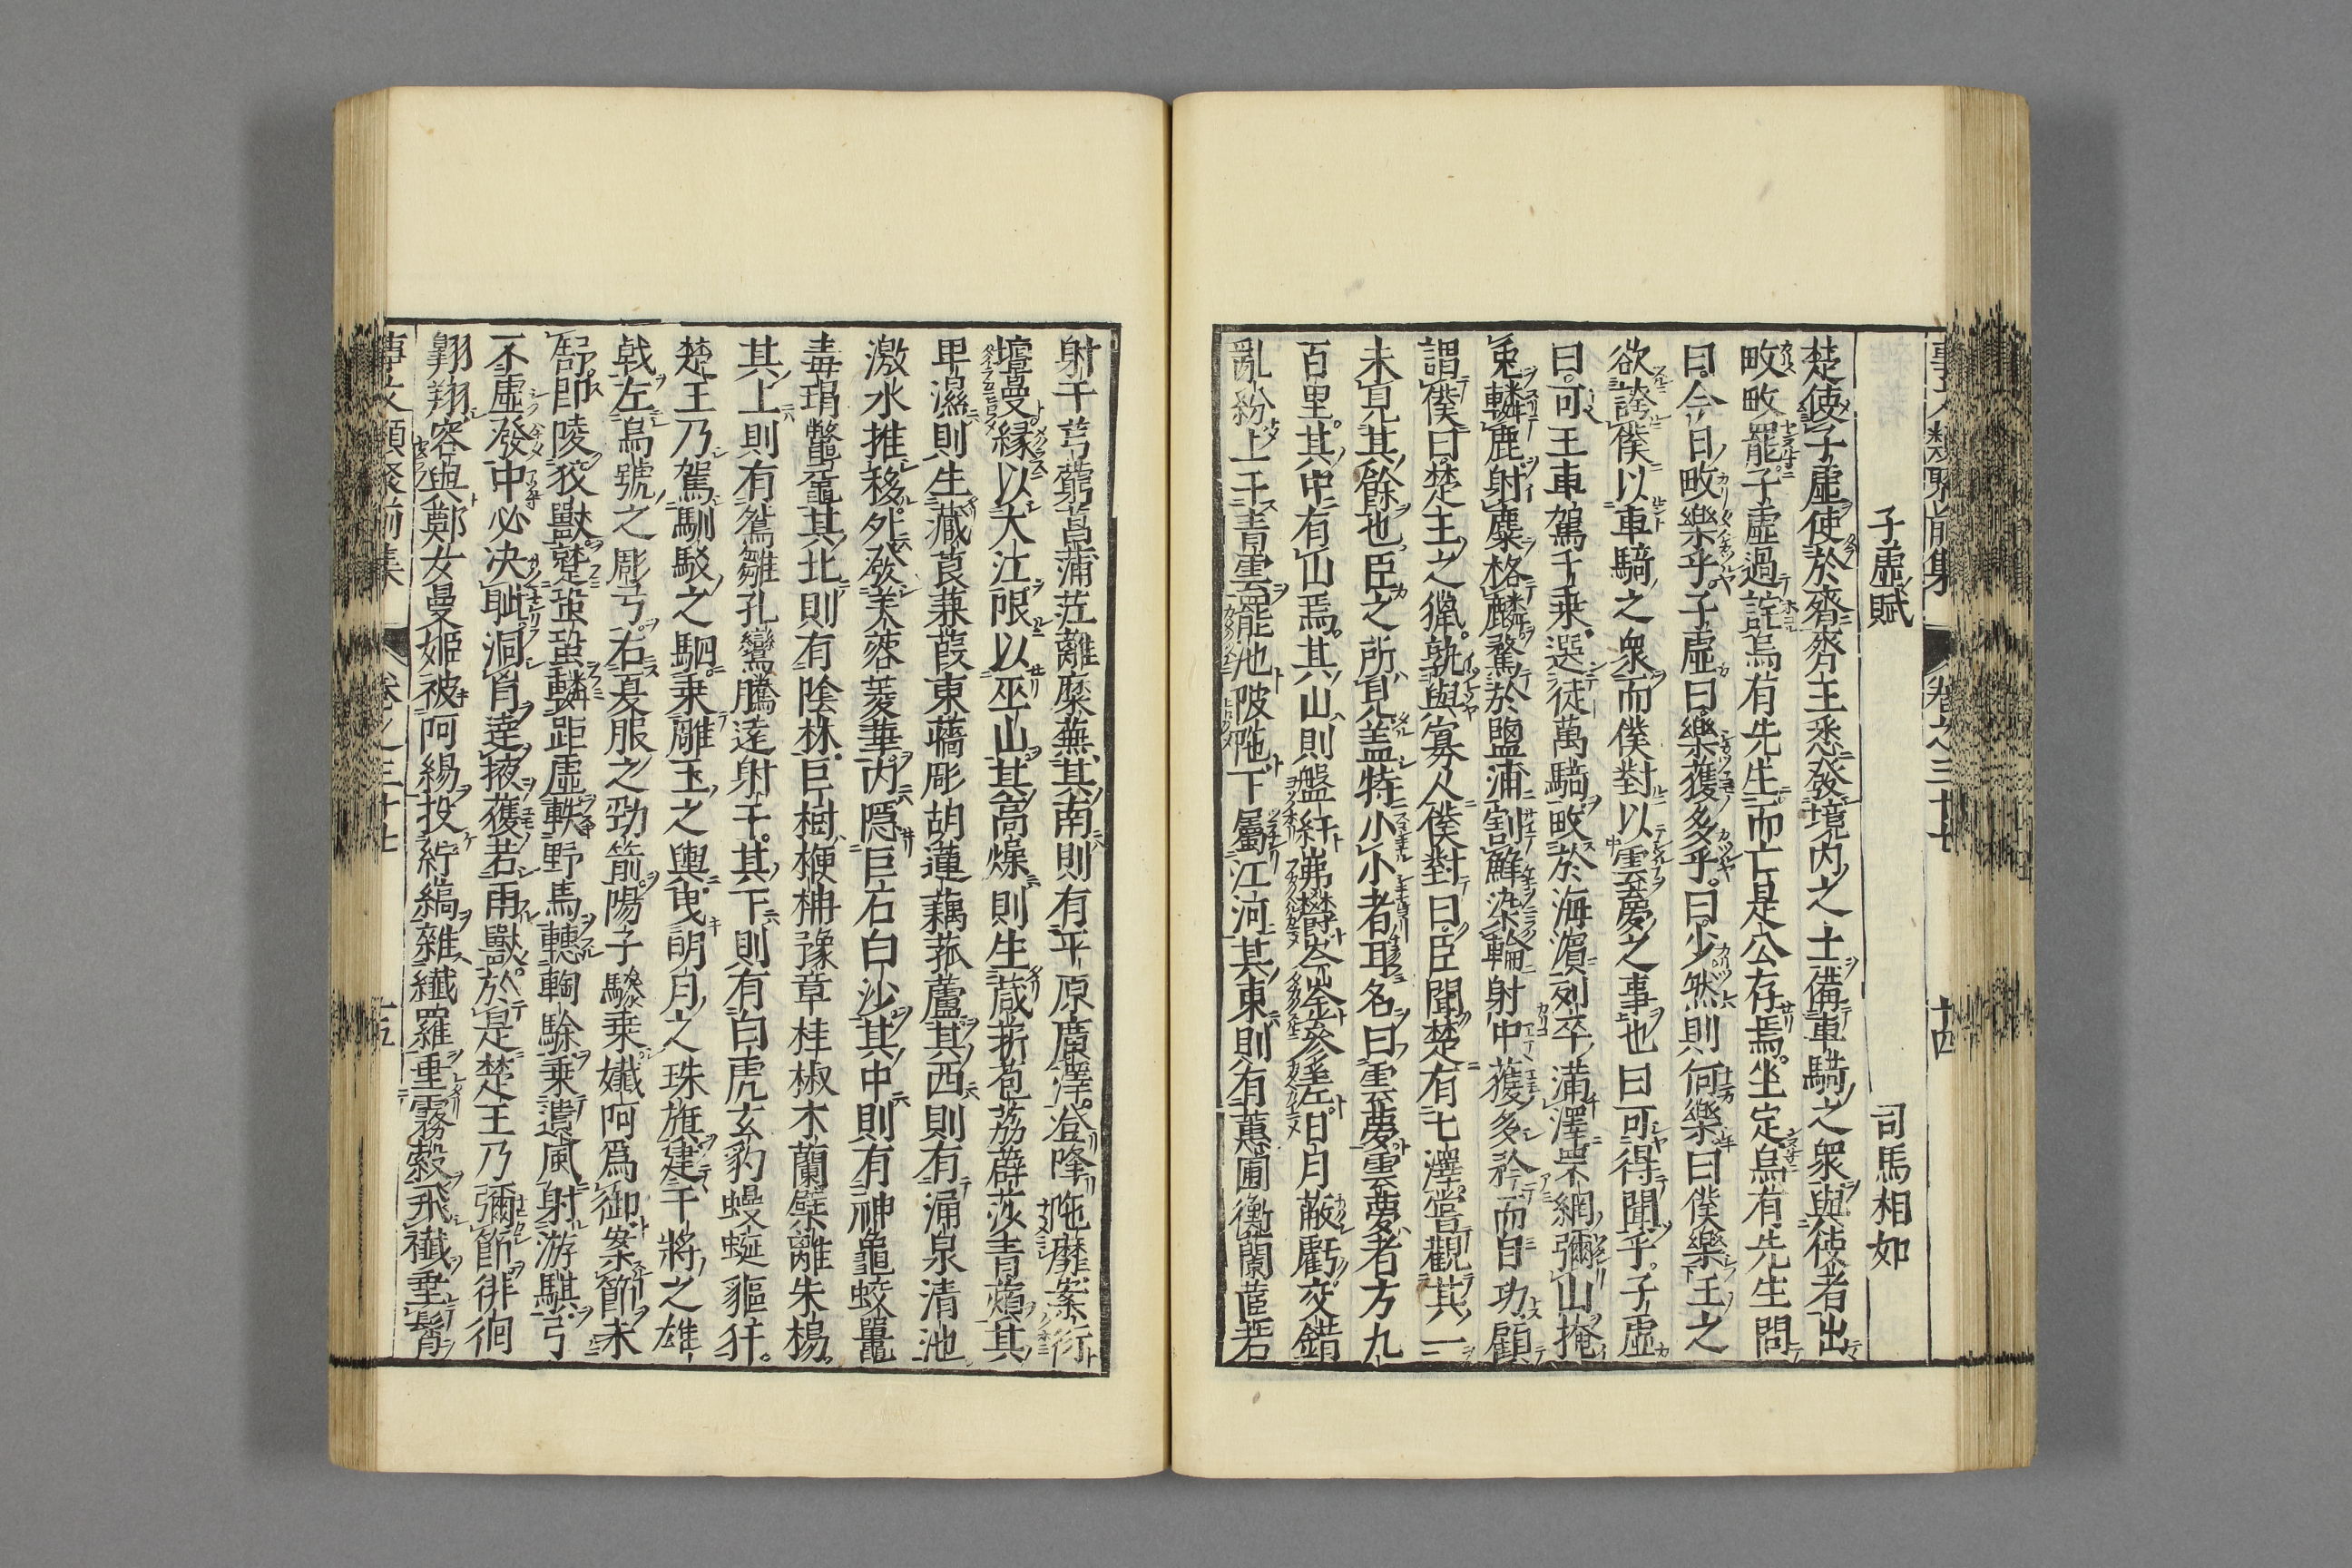 事文類聚前集 卷之三十七 十四
子虛賦 司馬相如
楚使子虛使於齊齊王悉發境內之士備車騎之衆與使者出
畋畋罷子虛過詫烏有先生而亡是公存焉坐定烏有先生問
曰今日畋樂乎子虛曰樂獲多乎曰少然則何樂曰僕樂王之
欲誇僕以車騎之衆而僕對以雲夢之事也曰可得聞乎子虛
曰可王車駕千乘選徒萬騎畋於海濱列卒滿澤罘網彌山掩
兎轔鹿射麋格麟騖於鹽浦割鮮染輪射中獲多矜而自功顧
謂僕曰楚王之獵孰與寡人僕對曰臣聞楚有七澤嘗觀其一
未見其餘也臣之所見盖特小小者耳名曰雲夢雲夢者方九
百里其中有山焉其山則盤紆岪欝岑崟參差日月蔽虧交錯
亂紛上干青雲罷池陂陁下屬江河其東則有蕙圃衡蘭茝若
射干芎藭菖蒲茳蘺麋蕪其南則有平原廣澤登降陁靡案衍
壇曼緣以大江限以巫山其高燥則生葴菥苞荔薜莎青薠其
卑濕則生藏莨蒹葭東蘠彫胡蓮藕菰蘆其西則有涌泉清池
激水推移外發芙蓉菱華內隱巨石白沙其中則有神龜蛟鼉
毒瑁鼈黿其北則有陰林巨樹楩柟豫章桂椒木蘭檗離朱楊
其上則有鵷雛孔鸞騰遠射干其下則有白虎玄豹蟃蜒貙犴
楚王乃駕馴駁之駟乘雕玉之輿曳明月之珠旗建干將之雄
戟左烏號之彫弓右夏服之勁箭陽子驂乘孅阿爲御案節未
舒即陵狡獸蹵蛩蛩轔距虛軼野馬轊騊駼乘遺風射游騏弓
不虛發中必决眦洞胷達掖獲若雨獸於是楚王乃彌節徘徊
翶翔容與鄭女曼姬被阿緆投紵縞雜纎羅垂霧縠飛襳垂髾
事文類聚前集 卷之三十七 十五